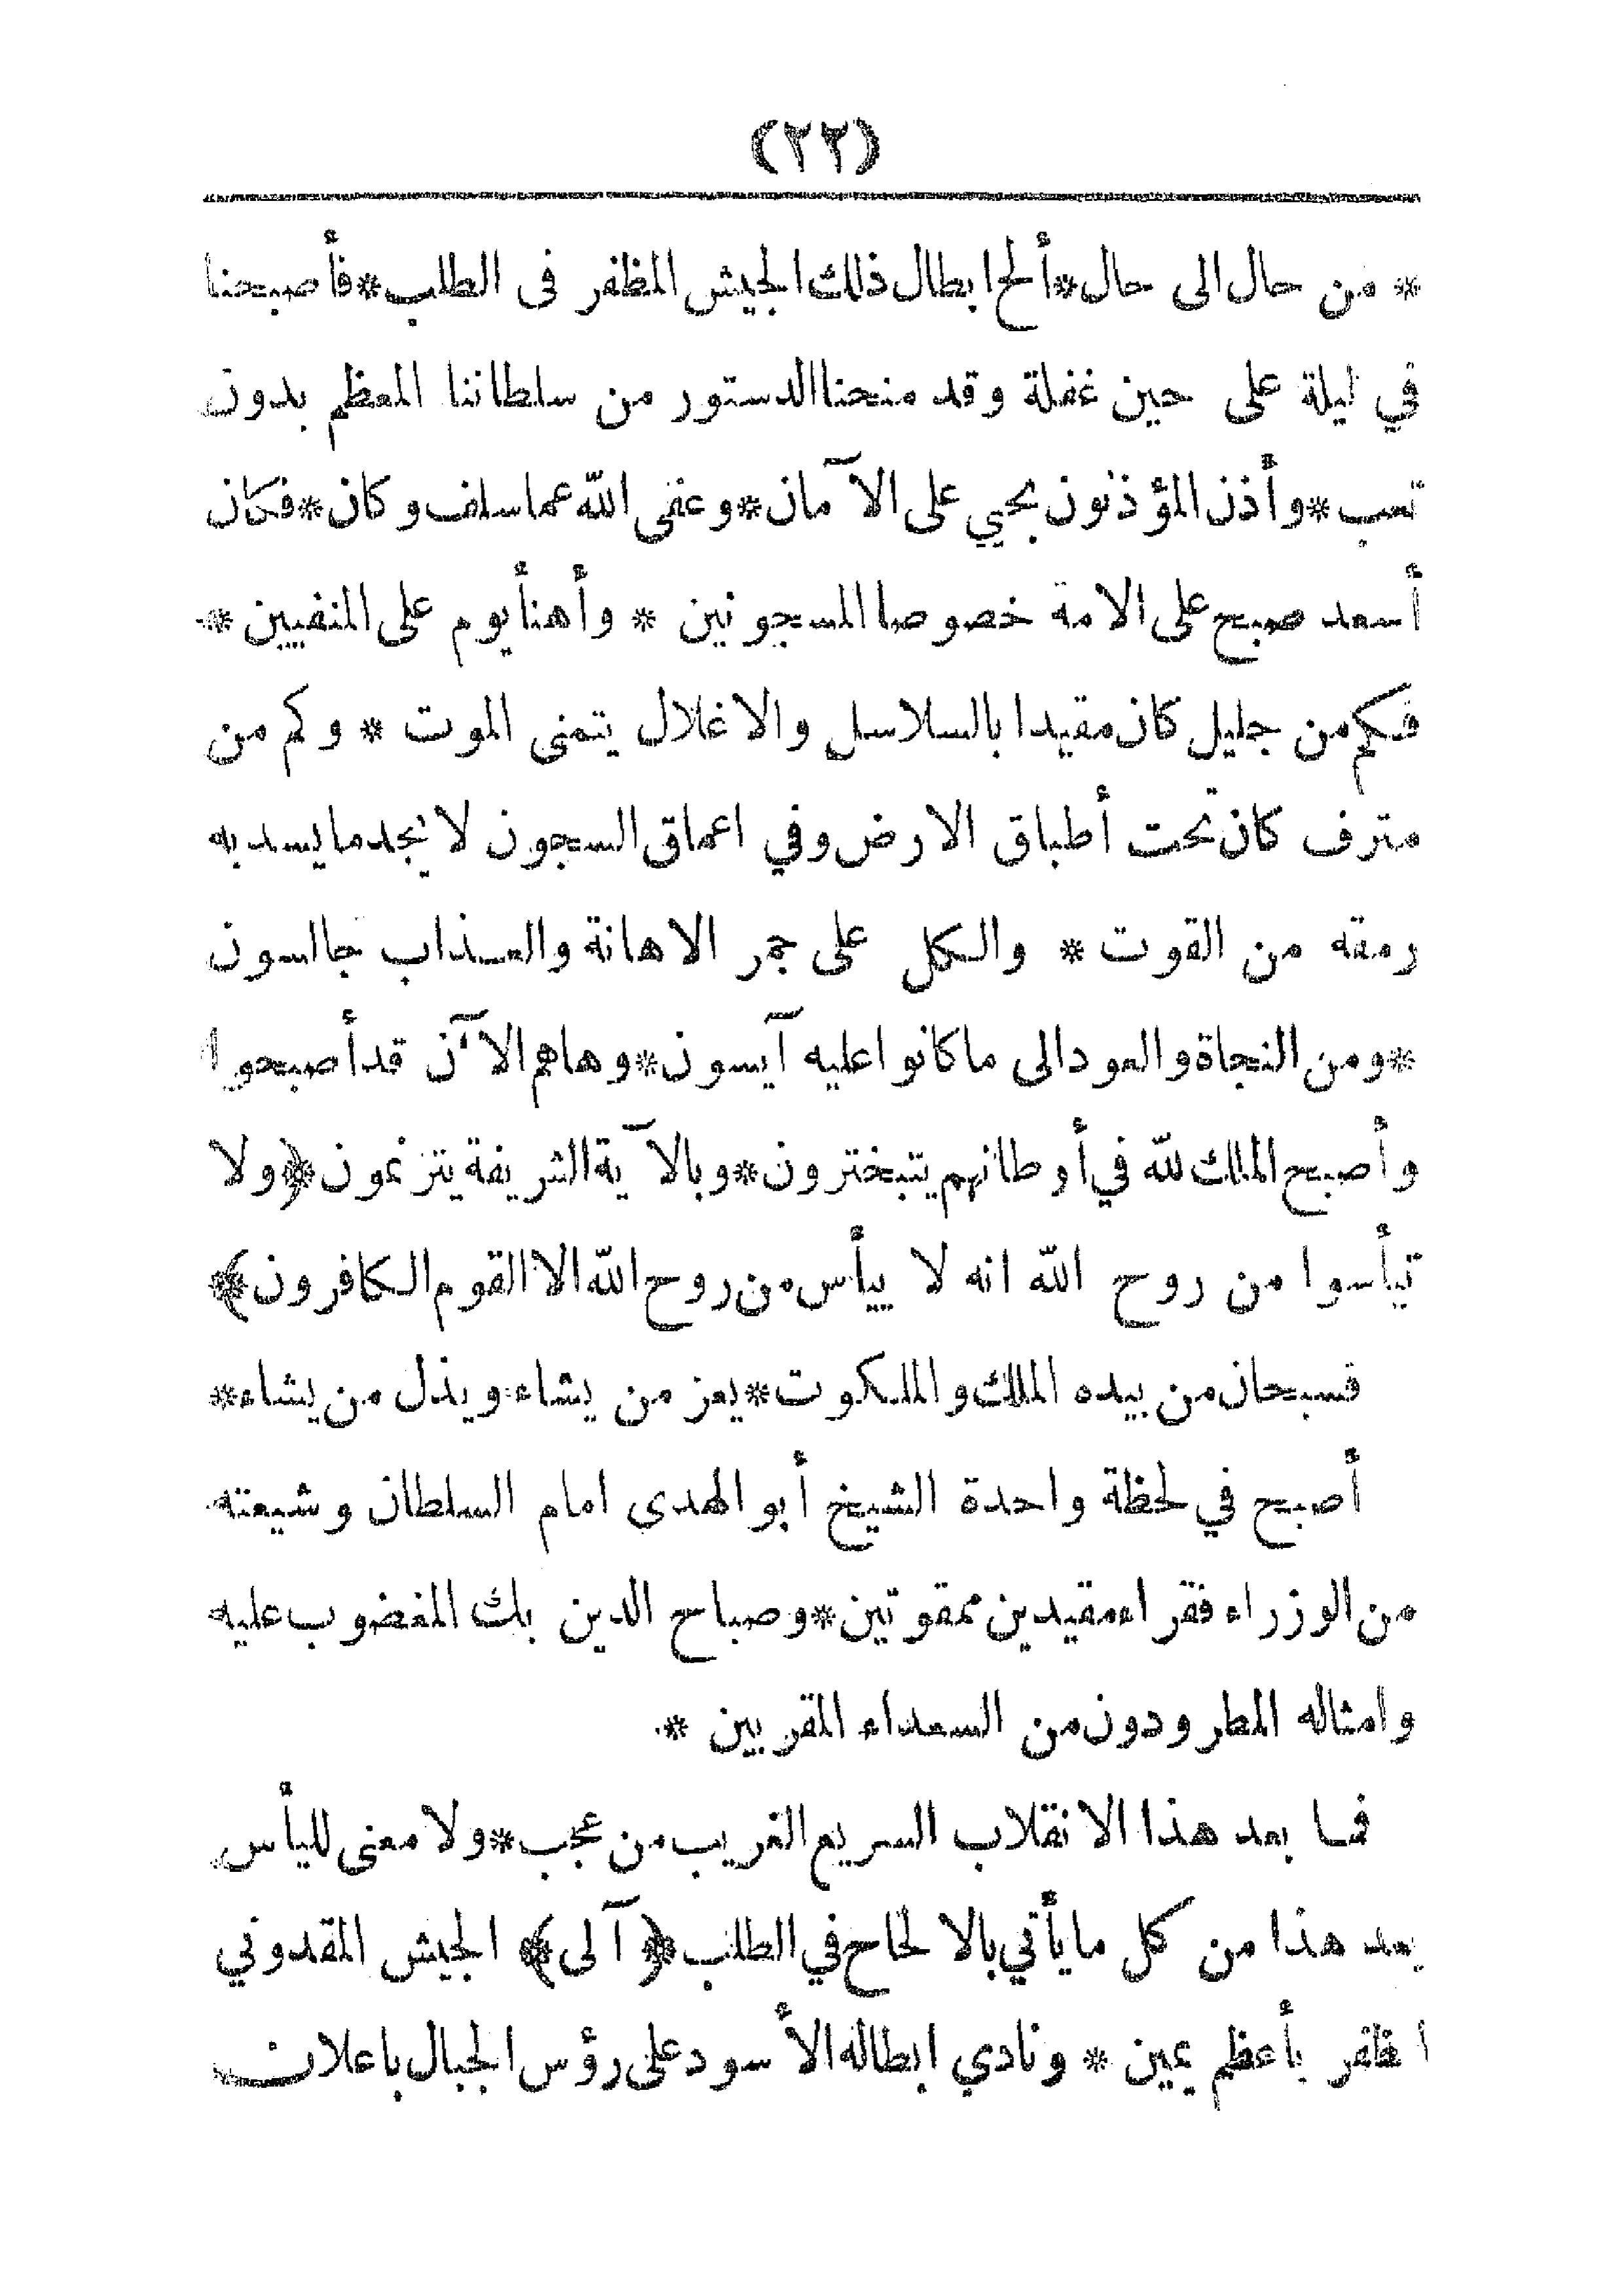 (٢٢)
* من حال الى حال*ألح ابطال ذلك الجيش المظفر فى الطلب*فأصبحنا
في ليلة على حين غفلة وقد منحنا الدستور من سلطاننا المعظم بدون
تعب*وأذن المؤذنون بحيي على الآمان*وعفى الله عما سلف وكان*فكان
أسعد صبح على الامة خصوصا المسجونين * وأهنأ يوم على المنفيين *
فكم من جليل كان مقيدا بالسلاسل والاغلال يتمنى الموت * وكم من
مترف كان تحت أطباق الارض وفي اعماق السجون لا يجد ما يسد به
رمقه من القوت * والكل على جمر الاهانة والعذاب جالسون
*ومن النجاة والعود الى ما كانوا عليه آيسون*وهاهم الآن قد أصبحوا
وأصبح الملك لله في أوطانهم يتبخترون*وبالآية الشريفة يترنمون﴿ولا
تيأسوا من روح الله انه لا ييأس من روح الله الا القوم الكافرون﴾
فسبحان من بيده الملك والملكوت*يعز من يشاء ويذل من يشاء*
أصبح في لحظة واحدة الشيخ أبو الهدى امام السلطان وشيعته
من الوزراء فقراء مقيدين ممقوتين*وصباح الدين بك المغضوب عليه
وامثاله المطرودون من السعداء المقربين *
فما بعد هذا الانقلاب السريع الغريب من عجب*ولا معنى لليأس
بعد هذا من كل ما يأتي بالالحاح في الطلب ﴿آلى﴾ الجيش المقدوني
المظفر بأعظم يمين * ونادي ابطاله الأسود على رؤس الجبال باعلان